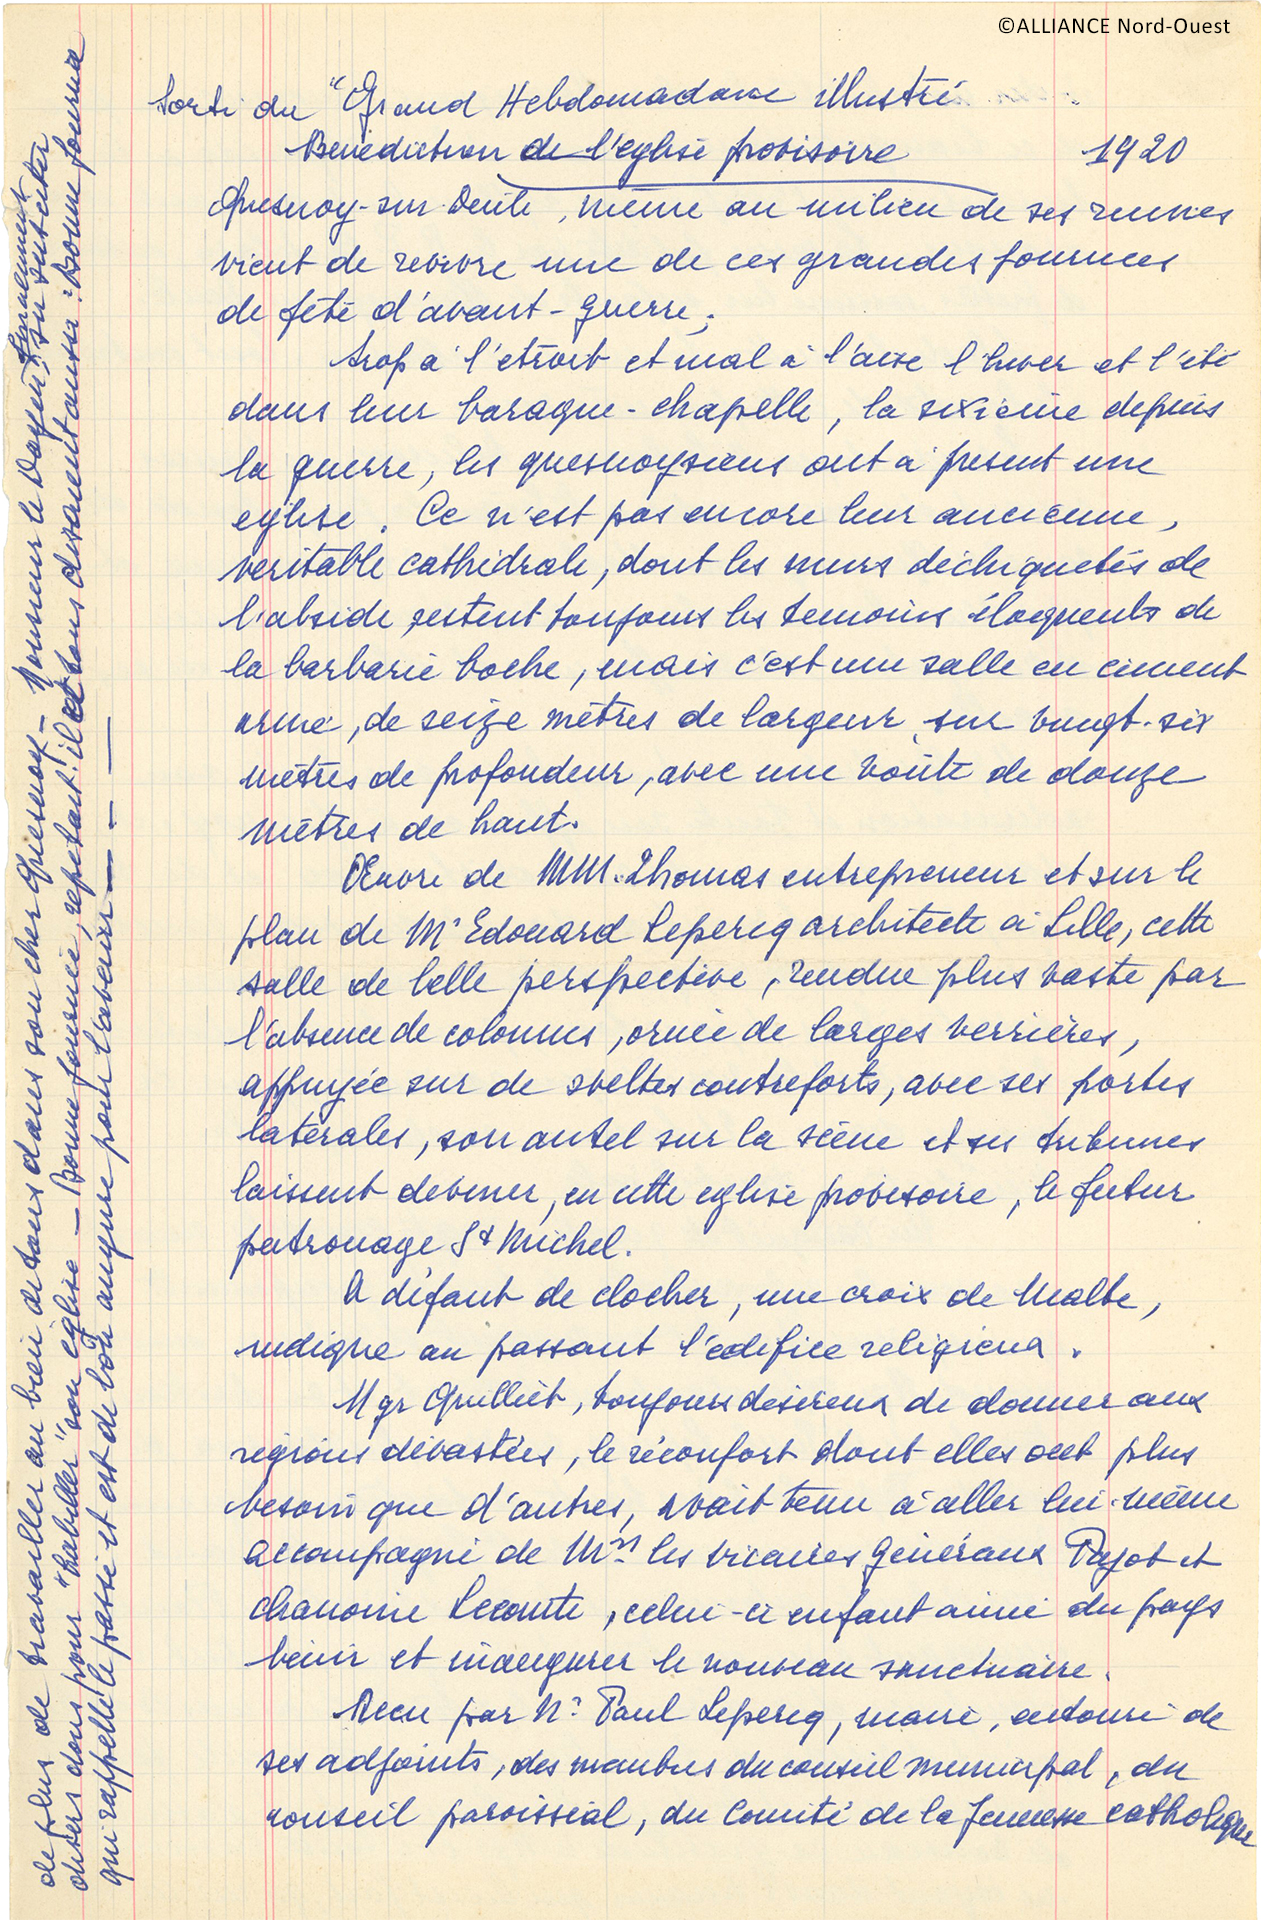 ©ALLIANCE Nord-Ouest
Sorti du "Grand Hebdomadaire illustré
Bénédiction de l'église provisoire 1920
Quesnoy-sur-Deûle, même au milieu de ses ruines
vient de revivre une de ces grandes journées
de fête d'avant-guerre.
trop à l'étroit et mal à l'aise l'hiver et l'été
dans leur baraque-chapelle, la sixième depuis
la guerre, les quesnoysiens ont à présent une
église. Ce n'est pas encore leur ancienne,
véritable cathédrale, dont les murs déchiquetés de
l'abside restent toujours les témoins éloquents de
la barbarie boche, mais c'est une salle en ciment
armé, de seize mètres de largeur sur vingt-six
mètres de profondeur, avec une voûte de douze
mètres de haut.
Œuvre de MM. Thomas entrepreneur et sur le
plan de Mr Edouard Lepercq architecte à Lille, cette
salle de belle perspective, rendue plus vaste par
l'absence de colonnes, ornée de larges verrières,
appuyée sur de sveltes contreforts, avec ses portes
latérales, son autel sur la scène et ses tribunes
laissent deviner, en cette église provisoire, le futur
patronage St Michel.
A défaut de clocher, une croix de Malte,
indique au passant l'édifice religieux.
Mgr Quilliet, toujours désireux de donner aux
régions dévastées, le réconfort dont elles ont plus
besoin que d'autres, avait tenu à aller lui-même
accompagné de Mrs les vicaires généraux Pajot et
chanoine Lecomte, celui-ci enfant aimé du pays
bénir et inaugurer le nouveau sanctuaire.
Recu par Mr Paul Lepercq, maire, entouré de
ses adjoints, des membres du conseil municipal, du
conseil paroissial, du Comité de la Jeunesse catholique
de plus de travailler au bien de tous dans son cher Quesnoy - Monsieur le Doyen,
divers dons pour "habiller" son église - Bonne journée, répétait-il et tous disaient aussi: Bonne journée
qui rappelle le passé et est de bon augure pour l'avenir -